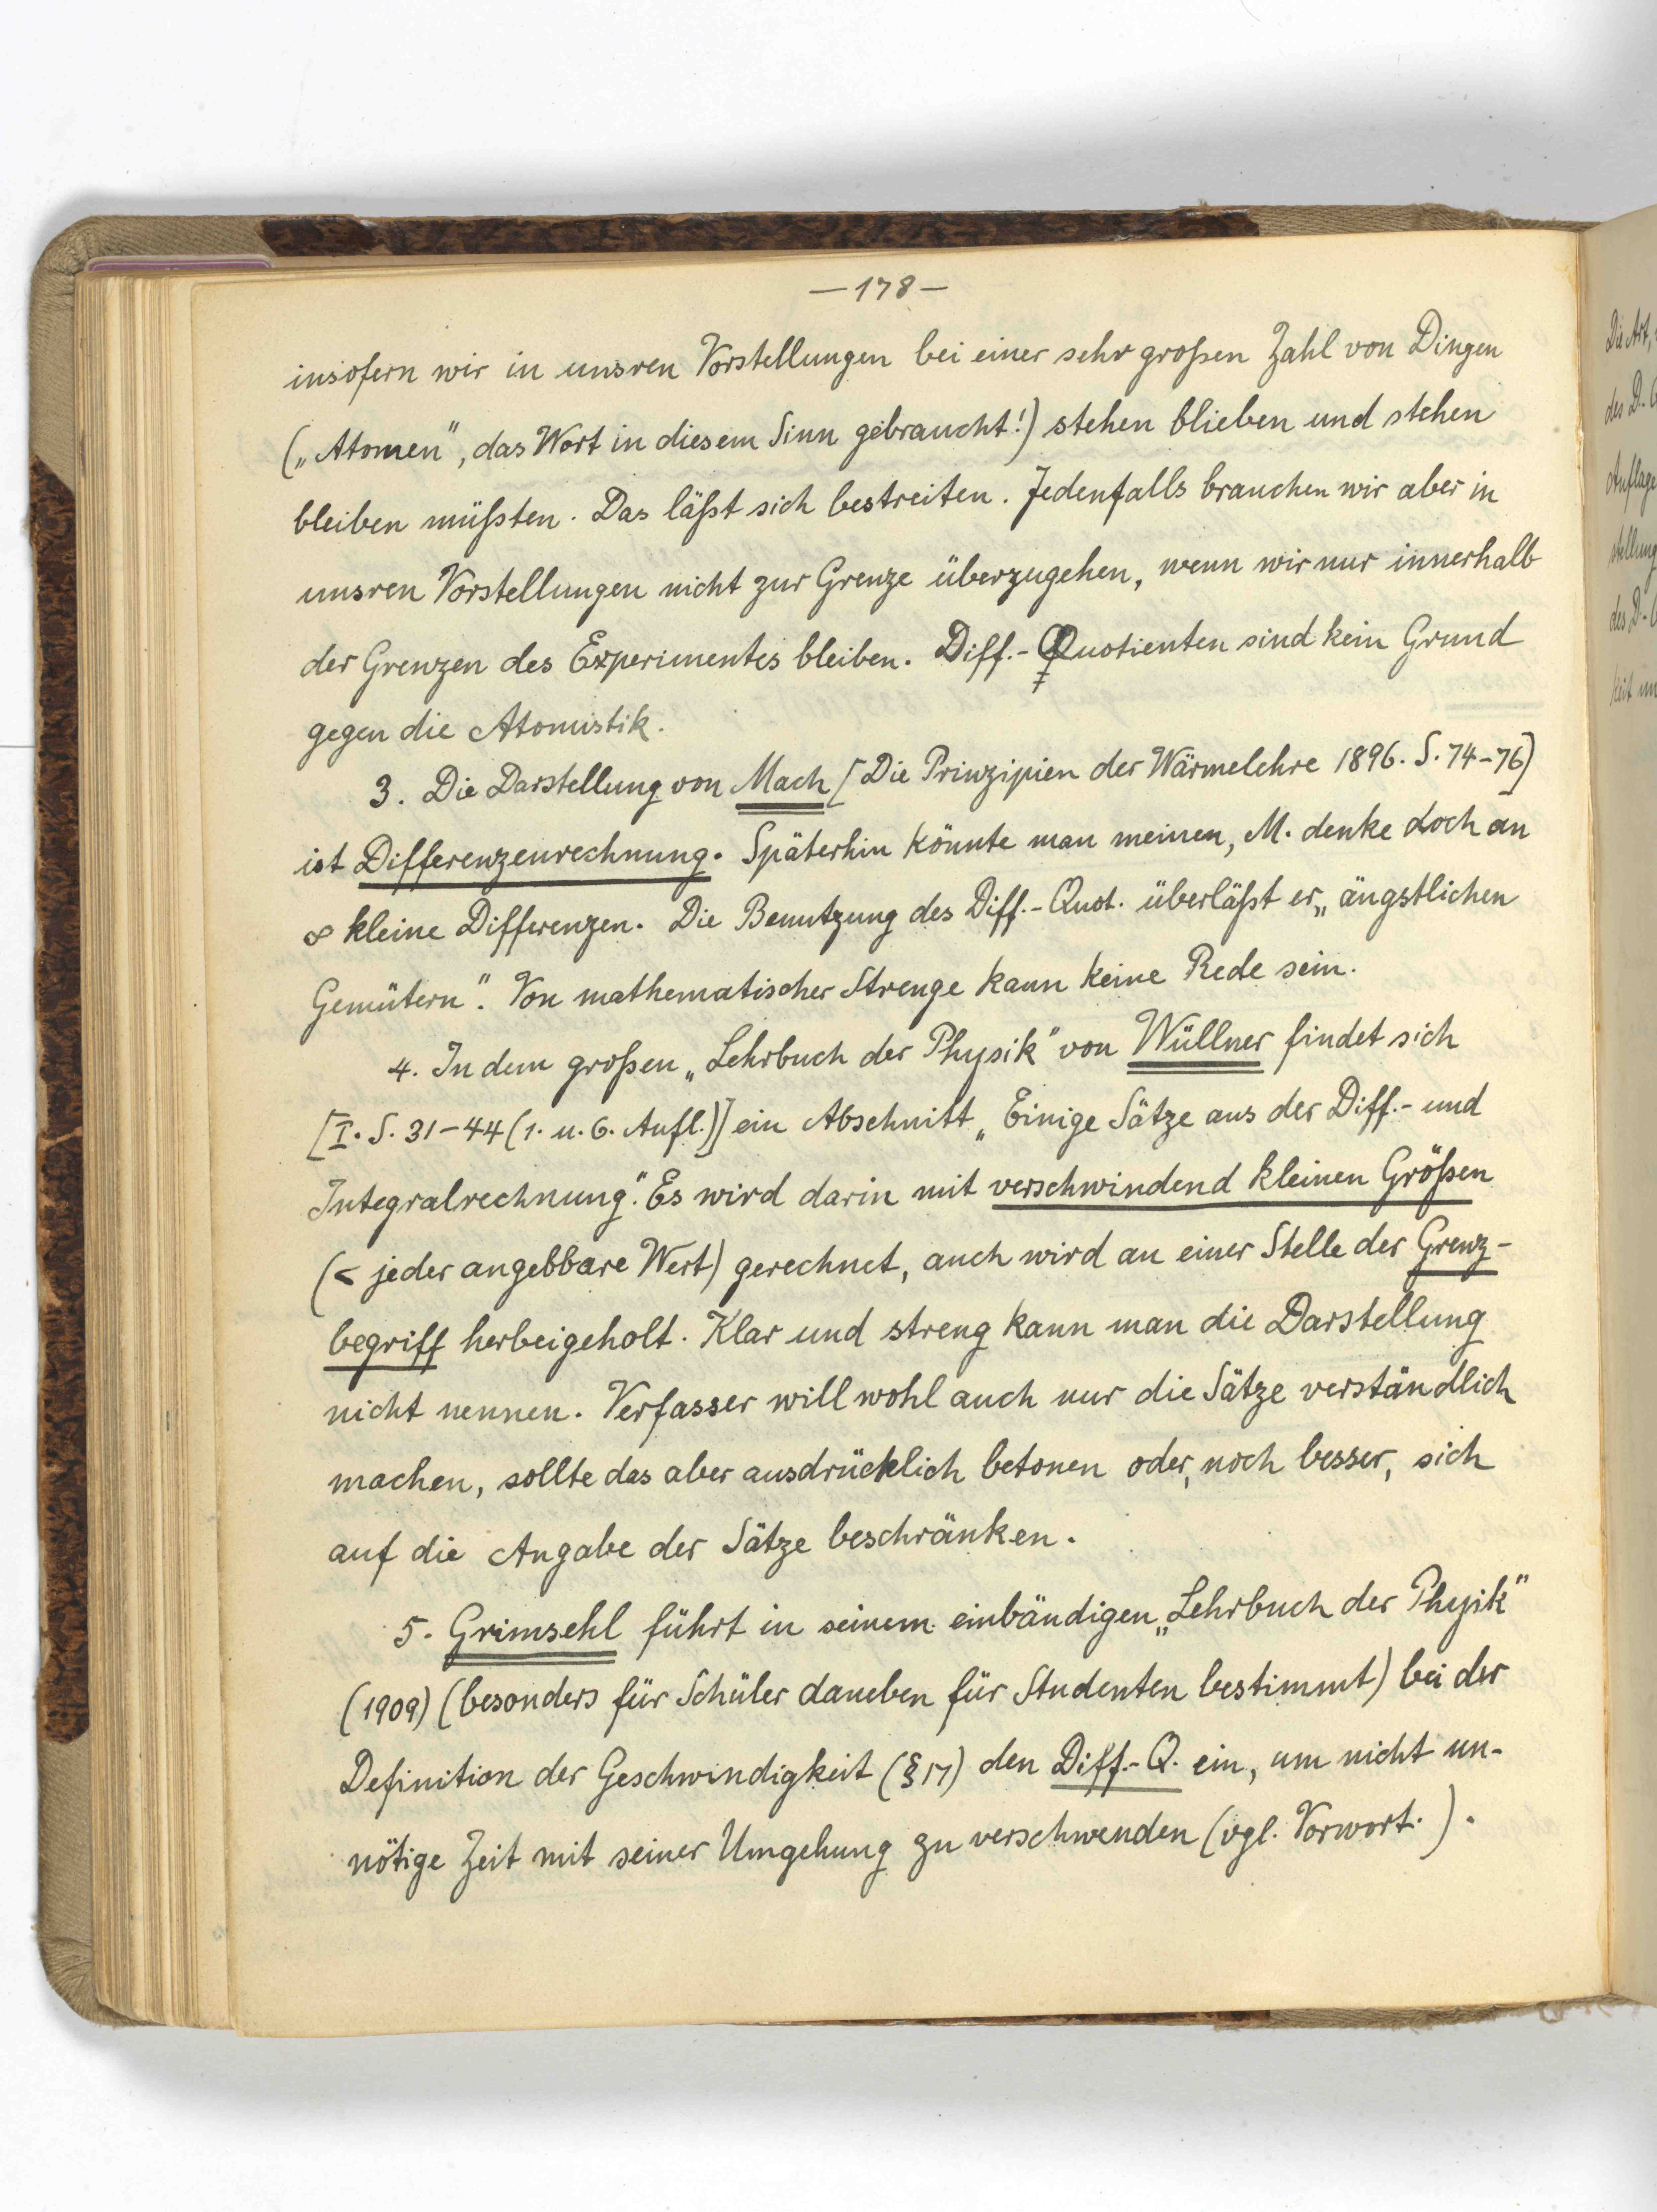 —178—
insofern wir in unsren Vorstellungen bei einer sehr großen Zahl von Dingen
(„Atomen", das Wort in diesem Sinn gebraucht!) stehen blieben und stehen
bleiben müßten. Das läßt sich bestreiten. Jedenfalls brauchen wir aber in
unsren Vorstellungen nicht zur Grenze überzugehen, wenn wir nur innerhalb
der Grenzen des Experimentes bleiben. Diff.-Quotienten sind kein Grund
gegen die Atomistik.
3. Die Darstellung von Mach [Die Prinzipien der Wärmelehre 1896. S. 74-76]
ist Differenzenrechnung. Späterhin könnte man meinen, M. denke doch an
∞ kleine Differenzen. Die Benutzung des Diff.-Quot. überläßt er „ängstlichen
Gemütern". Von mathematischer Strenge kann keine Rede sein.
4. In dem großen „Lehrbuch der Physik" von Wüllner findet sich
[I. S. 31-44 (1. u. 6. Aufl.)] ein Abschnitt „Einige Sätze aus der Diff.- und
Integralrechnung". Es wird darin mit verschwindend kleinen Größen
(< jeder angebbare Wert) gerechnet, auch wird an einer Stelle der Grenz-
begriff herbeigeholt. Klar und streng kann man die Darstellung
nicht nennen. Verfasser will wohl auch nur die Sätze verständlich
machen, sollte das aber ausdrücklich betonen oder, noch besser, sich
auf die Angabe der Sätze beschränken.
5. Grimsehl führt in seinem einbändigen „Lehrbuch der Physik"
(1909) (besonders für Schüler daneben für Studenten bestimmt) bei der
Definition der Geschwindigkeit (§ 17) den Diff.-Q. ein, um nicht un-
nötige Zeit mit seiner Umgehung zu verschwenden (vgl. Vorwort.).
Die Art,
des D.-
Auflage
stellung
des D.-
keit